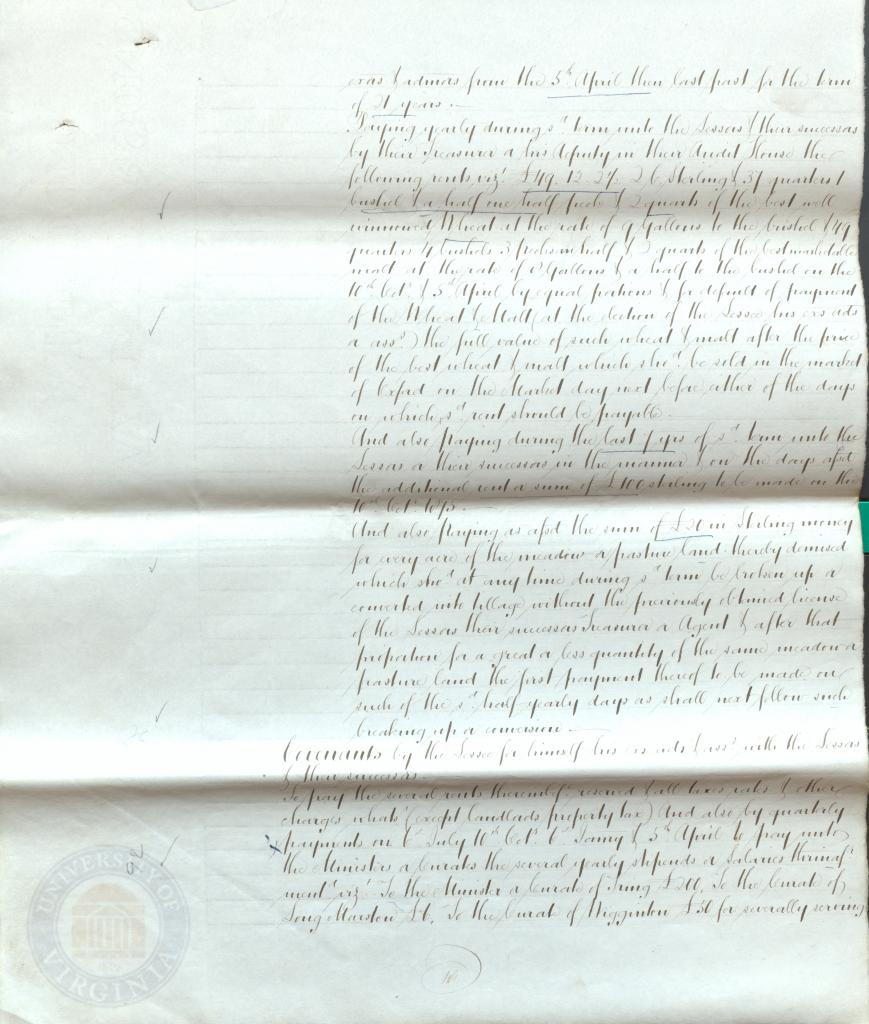 exors & admors from the 5th April then last past for the term
of 21 years.—
Paying yearly during sd. term unto the Lessors & their successors
by their Treasurer or his Deputy in their Audit House the
following rents vizt. £49. 12. Sterling & 37 quarters 1
bushel & a half one half peck & 2 quarts of the best well
winnowed Wheat at the rate of 9 Gallons to the bushel & 49
quarters 4 bushels 3 pecks an half & quarts of the best marketable
malt at the rate of 8 Gallons & a half to the bushel on the
10th Octr. & 5th April by equal portions & for default of payment
of the Wheat & Malt (at the election of the Lessee his exs ads
or asss.) the full value of such wheat & malt after the price
of the best wheat & malt which shod. be sold in the market
of Oxford on the Market day next before either of the days
on which sd. rent should be payable.—
And also Paying during the last 7 yrs of sd. term unto the
Lessors or their successors in the manner & on the days afsd
the additional rent or sum of £100 sterling to be made on the
10th Octr. 1875.—
And also Paying as afsd the sum of £20 in Sterling money
for every acre of the meadow or pasture land thereby demised
which shod. at any time during sd. term be broken up or
converted into tillage without the previously obtained license
of the Lessors their successors Treasurer or Agent & after that
proportion for a great or less quantity of the same meadow or
pasture land the first payment thereof to be made on
such of the sd. half yearly days as shall next follow such
breaking up or conversion.—
Covenants by the Lessee for himself his exs ads & asss. with the Lessors
& their successors.—
To pay the several rents thereinbef. reserved & all taxes rates & other
charges whatsr. (except landlords property tax) And also by quarterly
payments on 6th July 10th Octr. 6th Janry & 5th April to pay unto
the Ministers or Curates the several yearly stipends or Salaries thrinaf.
mentd. vizt. To the Minister or Curate of Tring £200. To the Curate of
Long Marston £6, To the Curate of Wigginton £50 for severally serving
10
UNIVERSITY OF VIRGINIA